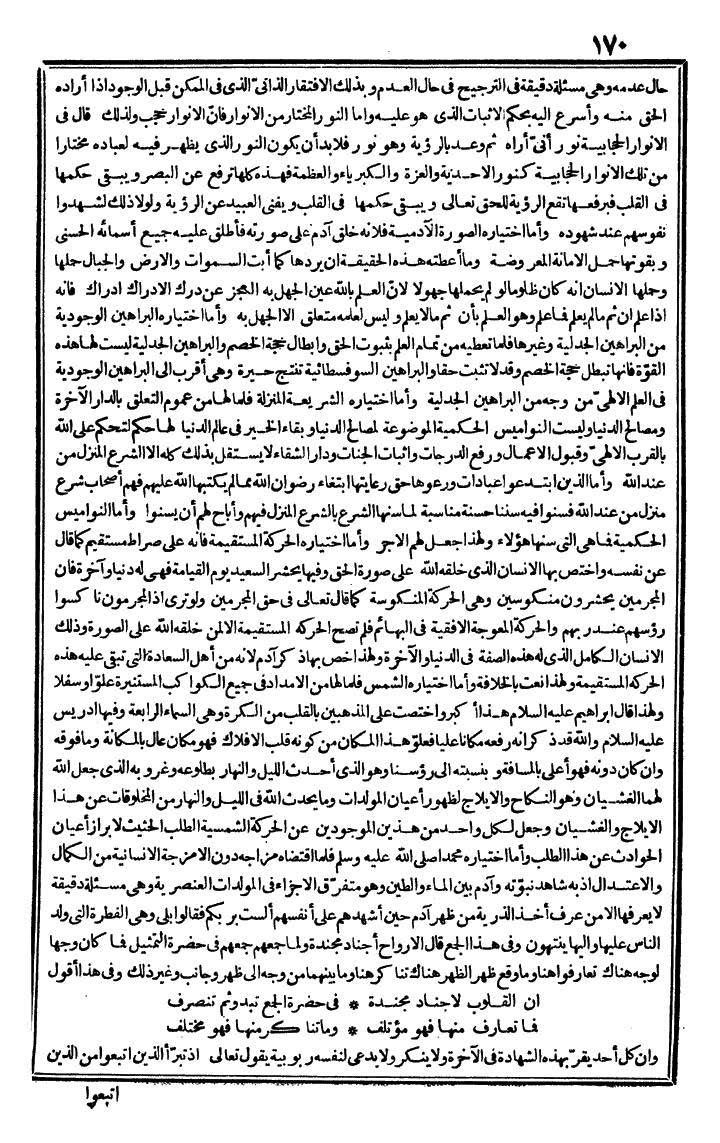 ١٧٠
حال عدمه وهي مسئلة دقيقة في الترجيح في حال العدم وبذلك الافتقار الذاتيّ الذي في الممكن قبل الوجود اذا أراده
الحق منه وأسرع اليه بحكم الاثبات الذي هو عليه واما النور المختار من الانوار فانّ الانوار حجب ولذلك قال في
الانوار الحجابية نور أنى أراه ثم وعد بالرؤية وهو نور فلا بد أن يكون النور الذي يظهر فيه لعباده مختارا
من تلك الانوار الحجابية كنور الاحدية والعزة والكبرياء والعظمة فهذه كلها ترفع عن البصر ويبقى حكمها
في القلب فبرفعها تقع الرؤية للحق تعالى ويبقى حكمها في القلب ويفنى العبيد عن الرؤية ولولا ذلك لشهدوا
نفوسهم عند شهوده وأما اختياره الصورة الآدمية فلانه خلق آدم على صورته فأطلق عليه جميع أسمائه الحسنى
وبقوتها حمل الامانة المعروضة وما أعطته هذه الحقيقة ان يردها كما أبت السموات والارض والجبال حملها
وحملها الانسان انه كان ظلوما لو لم يحملها جهولا لانّ العلم بالله عين الجهل به العجز عن درك الادراك ادراك فانه
اذا علم ان ثم ما لم يعلم فما علم وهو العلم بأن ثم ما لا يعلم وليس لعلمه متعلق الا الجهل به وأما اختياره البراهين الوجودية
من البراهين الجدلية وغيرها فلما تعطيه من تمام العلم بثبوت الحق وابطال حجة الخصم والبراهين الجدلية ليست لها هذه
القوّة فانها تبطل حجة الخصم وقد لا تثبت حقا والبراهين السوفسطائية تنتج حيرة وهي أقرب الى البراهين الوجودية
في العلم الالهيّ من وجه من البراهين الجدلية وأما اختياره الشريعة المنزلة فلما لها من عموم التعلق بالدار الآخرة
ومصالح الدنيا وليست النواميس الحكمية الموضوعة لمصالح الدنيا وبقاء الخير في عالم الدنيا لها حكم لتحكم على الله
بالقرب الالهيّ وقبول الاعمال ورفع الدرجات واثبات الجنات ودار الشقاء لا يستقل بذلك كله الا الشرع المنزل من
عند الله وأما الذين ابتدعوا عبادات ورعوها حق رعايتها ابتغاء رضوان الله مما لم يكتبها الله عليهم فهم أصحاب شرع
منزل من عند الله فسنوا فيه سننا حسنة مناسبة لما سنها الشرع بالشرع المنزل فيهم وأباح لهم أن يسنوا وأما النواميس
الحكمية فما هي التي سنها هؤلاء ولهذا جعل لهم الاجر وأما اختياره الحركة المستقيمة فانه على صراط مستقيم كما قال
عن نفسه واختص بها الانسان الذي خلقه الله على صورة الحق وفيها يحشر السعيد يوم القيامة فهي له دنيا وآخرة فان
المجرمين يحشرون منكوسين وهي الحركة المنكوسة كما قال تعالى في حق المجرمين ولو ترى اذ المجرمون ناكسوا
رؤسهم عند ربهم والحركة المعوجة الافقية في البهائم فلم تصح الحركة المستقيمة الا لمن خلقه الله على الصورة وذلك
الانسان الكامل الذي له هذه الصفة في الدنيا والآخرة ولهذا خص بهاذ كر آدم لانه من أهل السعادة التي تبقى عليه هذه
الحركة المستقيمة ولهذا نعت بالخلافة وأما اختياره الشمس فلما لها من الامداد في جميع الكواكب المستنيرة علوّا وسفلا
ولهذا قال ابراهيم عليه السلام هذا أكبر واختصت على المذهبين بالقلب من الكرة وهي السماء الرابعة وفيها ادريس
عليه السلام والله قد ذكر انه رفعه مكانا عليا فعلوّ هذا المكان من كونه قلب الافلاك فهو مكان عال بالمكانة وما فوقه
وان كان دونه فهو أعلى بالمسافة وبنسبته الى رؤسنا وهو الذي أحدث الليل والنهار بطلوعه وغروبه الذي جعل الله
لهما الغشيان وهو النكاح والايلاج لظهور أعيان المولدات وما يحدث الله في الليل والنهار من المخلوقات عن هذا
الايلاج والغشيان وجعل لكل واحد من هذين الموجودين عن الحركة الشمسية الطلب الحثيث لابراز أعيان
الحوادث عن هذا الطلب وأما اختياره محمدا صلى الله عليه وسلم فلما اقتضاه مزاجه دون الامزجة الانسانية من الكمال
والاعتدال اذ به شاهد نبوّته وآدم بين الماء والطين وهو متفرّق الاجزاء في المولدات العنصرية وهي مسئلة دقيقة
لا يعرفها الا من عرف أخذ الذرية من ظهر آدم حين أشهدهم على أنفسهم ألست بربكم فقالوا بلى وهي الفطرة التي ولد
الناس عليها واليها ينتهون وفي هذا الجمع قال الارواح أجناد مجندة ولما جعهم جعهم في حضرة التمثيل فما كان وجها
لوجه هناك تعارفوا هنا وما وقع ظهر الظهر هناك تناكر هنا وما بينهما من وجه الى ظهر وجانب وغير ذلك وفي هذا أقول
ان القلوب لاجناد مجندة * في حضرة الجمع تبدو ثم تنصرف
فما تعارف منها فهو مؤتلف * وما تناكر منها فهو مختلف
وان كل أحد يقرّ بهذه الشهادة في الآخرة ولا ينكر ولا يدعى لنفسه ربوبية يقول تعالى اذ تبرّأ الذين اتبعوا من الذين
اتبعوا